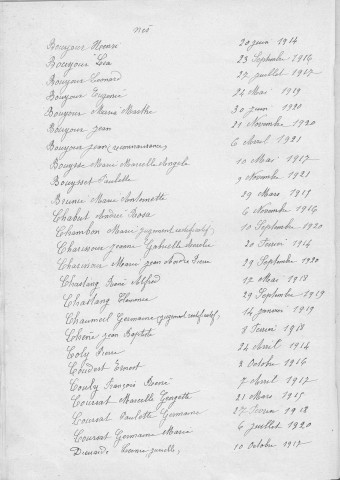 nés
Boujour Henri 20 juin 1914
Boujour Léa 23 Septembre 1916
Boujour Léonard 27 juillet 1917
Boujour Eugénie 24 Mai 1919
Boujour Marie Marthe 30 juin 1920
Boujour jean 21 Novembre 1920
Boujour jean (reconnaissance) 6 Avril 1921
Bouysse Marie Marcelle Angèle 10 Mai 1917
Bouysset Paulette 9 Novembre 1921
Brunie Marie Antoinette 29 Mars 1915
Chabut Andrée Rosa 6 Novembre 1916
Chambon Marie (jugement rectificatif) 10 Septembre 1920
Charissou jeanne Gabrielle 20 Février 1914
Charissou Marie jean André 29 Septembre 1920
Chastang René Alfred 12 Mai 1918
Chastang Florence 29 Septembre 1919
Chaumeil Germaine (jugement rectificatif) 14 janvier 1919
jean Baptiste 8 Février 1918
Coly 24 Avril 1914
Coudert Ernest 3 Octobre 1916
Couly François René 7 Avril 1917
Coursat Marcelle Georgette 21 Mars 1915
Coursat Paulette Germaine 27 Février 1918
Coursat Germaine Maria 6 juillet 1920
10 Octobre 1917